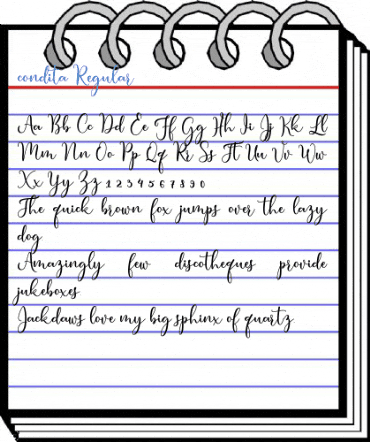 condita Regular
Aa Bb Cc Dd Ee Ff Gg Hh Ii Jj Kk Ll
Mm Nn Oo Pp Qq Rr Ss Tt Uu Vv Ww
Xx Yy Zz 1 2 3 4 5 6 7 8 9 0
The quick brown fox jumps over the lazy
dog
Amazingly few discotheques provide
jukeboxes
Jackdaws love my big sphinx of quartz